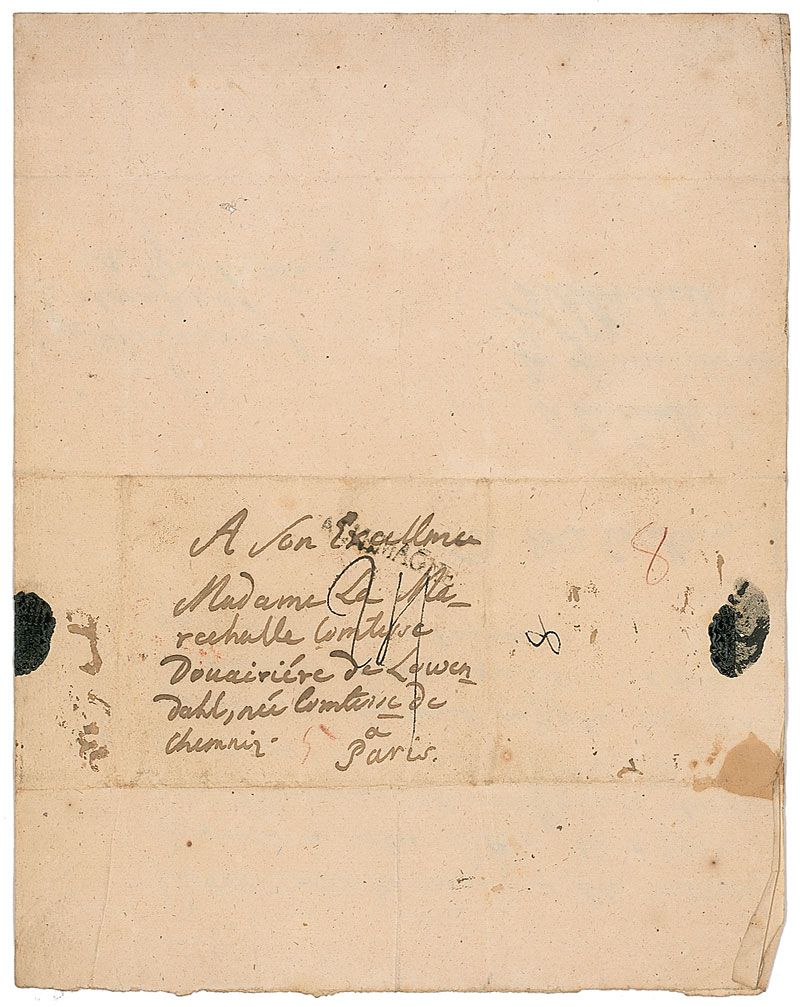 A Son Excellence
ALLEMAGNE
Madame La Ma-
rechalle Comtesse
Douairiére de Lowen
dahl, née Comtesse de
chemniz.
à
Paris.
24
8
8